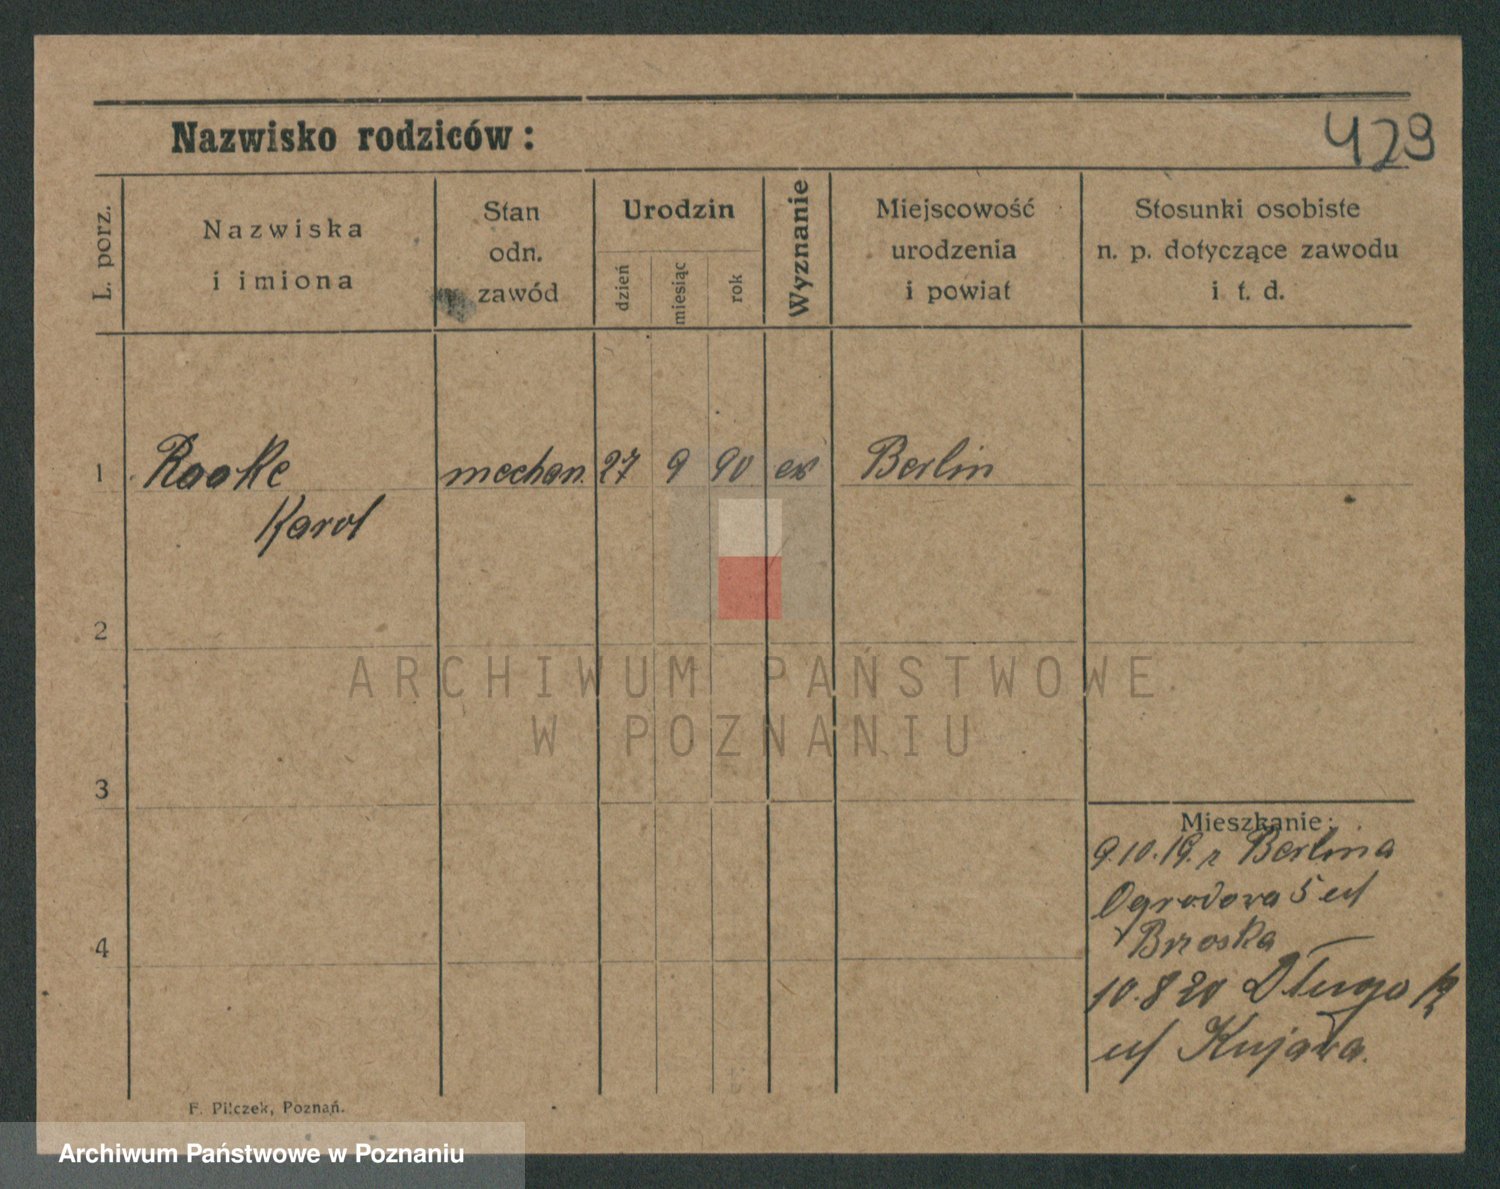 Nazwisko rodziców:
429
L. porz.
Nazwiska
i imiona
Stan
odn.
zawód
Urodzin
dzień
miesiąc
rok
Wyznanie
Miejscowość
urodzenia
i powiat
Stosunki osobiste
n. p. dotyczące zawodu
i t. d.
1
Raake
mechan.
27
9
90
ew
Berlin
Karol
2
ARCHIWUM PAŃSTWOWE
W POZNANIU
3
Mieszkanie:
9.10.19. z Berlina
Ogrodowa 5 u
4
Brzoska
10.8 20 Długa
u Kujawa.
F. Pilczek, Poznań.
Archiwum Państwowe w Poznaniu